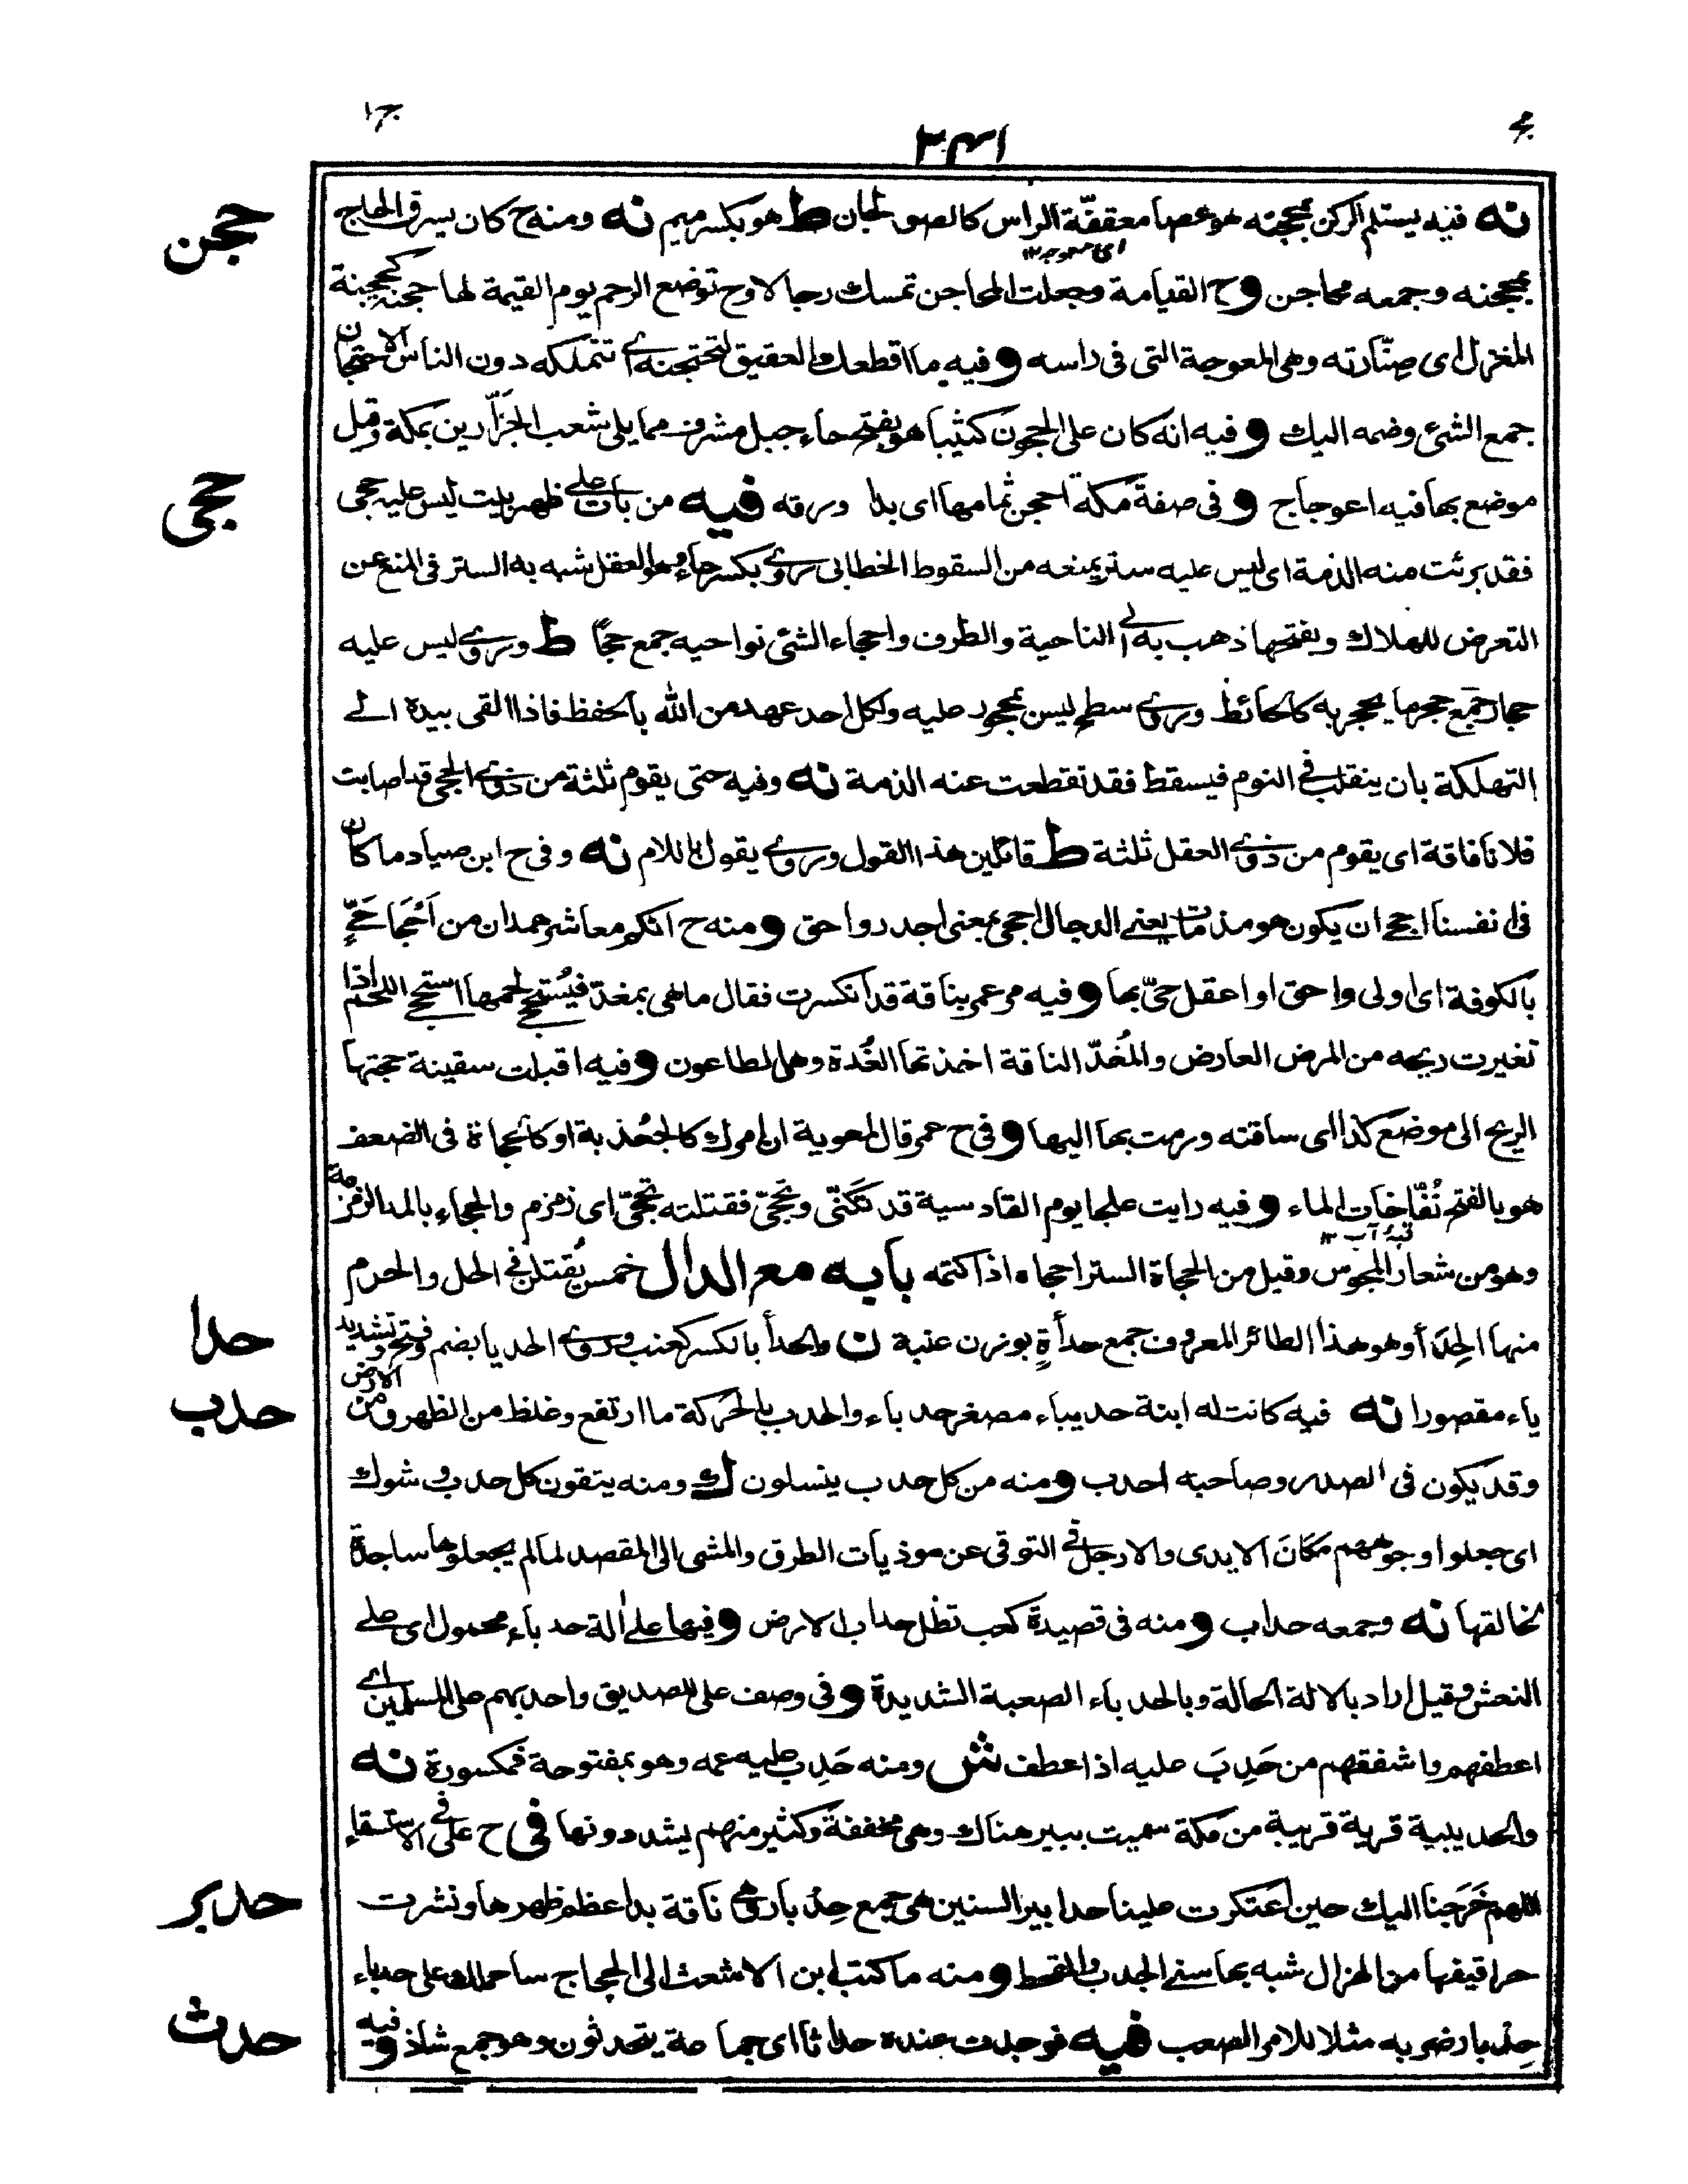 ج ١
٢٤١
نه فيه يستلم الركن بمحجنه هو عصا معقفّة الراس كالصولجان ط هو بكسر ميم نه ومنه ح كان يسرق الحاج
حجن
بمحجنه وجمعه محاجن و ح القيامة وجعلت المحاجن تمسك رجالا وح توضع الرحم يوم القيمة لها حجنة كحجنة
المغزل اى صِنّارته وهى المعوجة التى فى راسه و فيه ما اقطعك العقيق لتحتجنه اى تتملكه دون الناس الاحتجان
جمع الشئ وضمه اليك و فيه انه كان على الحجون كئيبا هو بفتح حاء جبل مشرف مما يلى شعب الجَزّارين بمكة وقيل
موضع بها فيه اعوجاج و فى صفة مكة احجن ثمامها اى بدا ورقه فيه من بات على ظهر بيت ليس عليه حجى
حجى
فقد برئت منه الذمة اى ليس عليه ستر يمنعه من السقوط الخطابى روى بكسر حاء وهو العقل شبه به الستر فى المنع عن
التعرض للهلاك وبفتحها ذهب به الى الناحية والطرف واحجاء الشئ نواحيه جمع حجًا ط وروى ليس عليه
حجار جمع حجر ما يحجر به كالحائط وروى سطح ليس بمحجور عليه ولكل احد عهد من الله بالحفظ فاذا القى بيده الى
التهلكة بان ينقلب فى النوم فيسقط فقد تقطعت عنه الذمة نه وفيه حتى يقوم ثلثة من ذوى الحجى قد اصابت
فلانا فاقة اى يقوم من ذوى العقل ثلثة ط قائلين هذا القول وروى يقول باللام نه وفى ح ابن صياد ما كان
فى انفسنا احجى ان يكون هو مذ مات يعنى الدجال احجى بمعنى اجدر واحق و منه ح انكم معاشر همدان من اَحْجَا حَيٍّ
بالكوفة اى اولى واحق او اعقل حىّ بها و فيه مر عمر بناقة قد انكسرت فقال ما هى بمغدّ فيُستحجى لحمها استحجى اللحم اذا
تغيرت ريحه من المرض العارض والمُغدّ الناقة اخذتها الغُدة وهى الطاعون و فيه اقبلت سفينة حجتها
الريح الى موضع كذا اى ساقته ورمت بها اليها و فى ح عمر قال لمعوية ان امرك كالجُعْدبة او كالحجاة فى الضعف
هو بالفتح نُفّاخات الماء و فيه رايت علجا يوم القادسية قد تَكَنّى وتَحَجّى فقتلته تحجّى اى زمزم والحجاء بالمد الزمزمة
وهو من شعار المجوس وقيل من الحجاة الستر احجاه اذا كتمه بابه مع الدال خمس يُقتلن فى الحل والحرم
منها الحِدَأ وهو هذا الطائر المعروف جمع حدأةٍ بوزن عنبة ن والحدأ بالكسر كعنب وروى الحديا بضم وفتح وتشديد
حدا
ياء مقصورا نه فيه كانت له ابنة حديباء مصغر حدباء والحدب بالحركة ما ارتفع وغلظ من الظهر ومن الارض
حدب
وقد يكون فى الصدر وصاحبه احدب و منه من كل حدب ينسلون ك ومنه يتقون كل حدب وشوك
اى جعلوا وجوههم مكانَ الايدى والارجل فى التوقى عن موذيات الطرق والمشى الى المقصد لما لم يجعلوها ساجدة
لخالقها نه وجمعه حداب و منه فى قصيدة كعب تظل حداب الارض و فيها على الة حدباء محمول اى على
النعش وقيل اراد بالالة الحالة وبالحدباء الصعبة الشديدة و فى وصف على الصديق واحدبهم على المسلمين اى
اعطفهم واشفقهم من حَدِبَ عليه اذا عطف ش ومنه حَدِب عليه عمه وهو بمفتوحة فمكسورة نه
والحديبية قرية قريبة من مكة سميت ببير هناك وهى مخففة وكثير منهم يشددونها فى ح على فى الاستسقاء
اللهم خَرَجنا اليك حين اعتكرت علينا حدابير السنين هى جمع حِدْبار وهى ناقة بدا عظم ظهرها ونشزت
حدبر
حراقيفها من الهزال شبه بها سنى الجدب والقحط و منه ما كتب ابن الاشعث الى الحجاج ساحملك على حدباء
حِدْبار ضربه مثلا للامر الصعب فيه فوجدت عنده حداثا اى جماعة يتحدثون وهو جمع شاذ و فيه
حدث